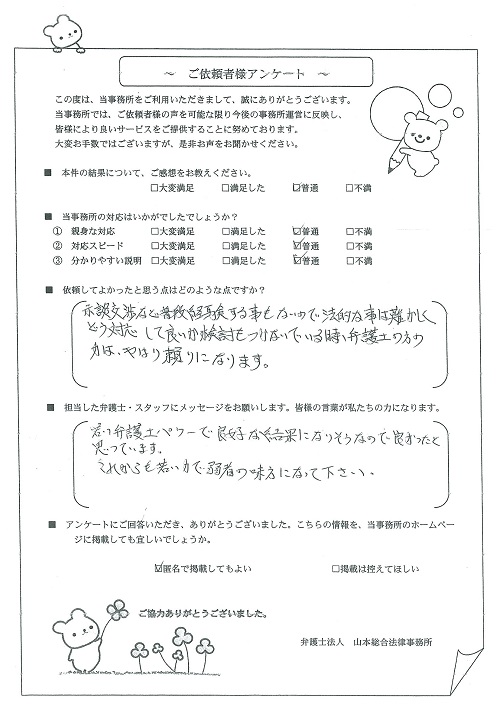 ～ ご依頼者様アンケート ～
この度は、当事務所をご利用いただきまして、誠にありがとうございます。
当事務所では、ご依頼者様の声を可能な限り今後の事務所運営に反映し、
皆様により良いサービスをご提供することに努めております。
大変お手数ではございますが、是非お声をお聞かせください。
■ 本件の結果について、ご感想をお教えください。
□大変満足 □満足した ☑普通 □不満
■ 当事務所の対応はいかがでしたでしょうか？
① 親身な対応 □大変満足 □満足した ☑普通 □不満
② 対応スピード □大変満足 □満足した ☑普通 □不満
③ 分かりやすい説明 □大変満足 □満足した ☑普通 □不満
■ 依頼してよかったと思う点はどのような点ですか？
示談交渉など普段経験する事もないので法的な事は難かしく
どう対応して良いか検討もつけないでいる時、弁護士の方の
力は、やはり頼りになります。
■ 担当した弁護士・スタッフにメッセージをお願いします。皆様の言葉が私たちの力になります。
若い弁護士パワーで良好な結果になりそうなので良かったと
思っています。
これからも若い力で弱者の味方になって下さい。
■ アンケートにご回答いただき、ありがとうございました。こちらの情報を、当事務所のホームペー
ジに掲載しても宜しいでしょうか。
☑匿名で掲載してもよい □掲載は控えてほしい
ご協力ありがとうございました。
弁護士法人 山本総合法律事務所